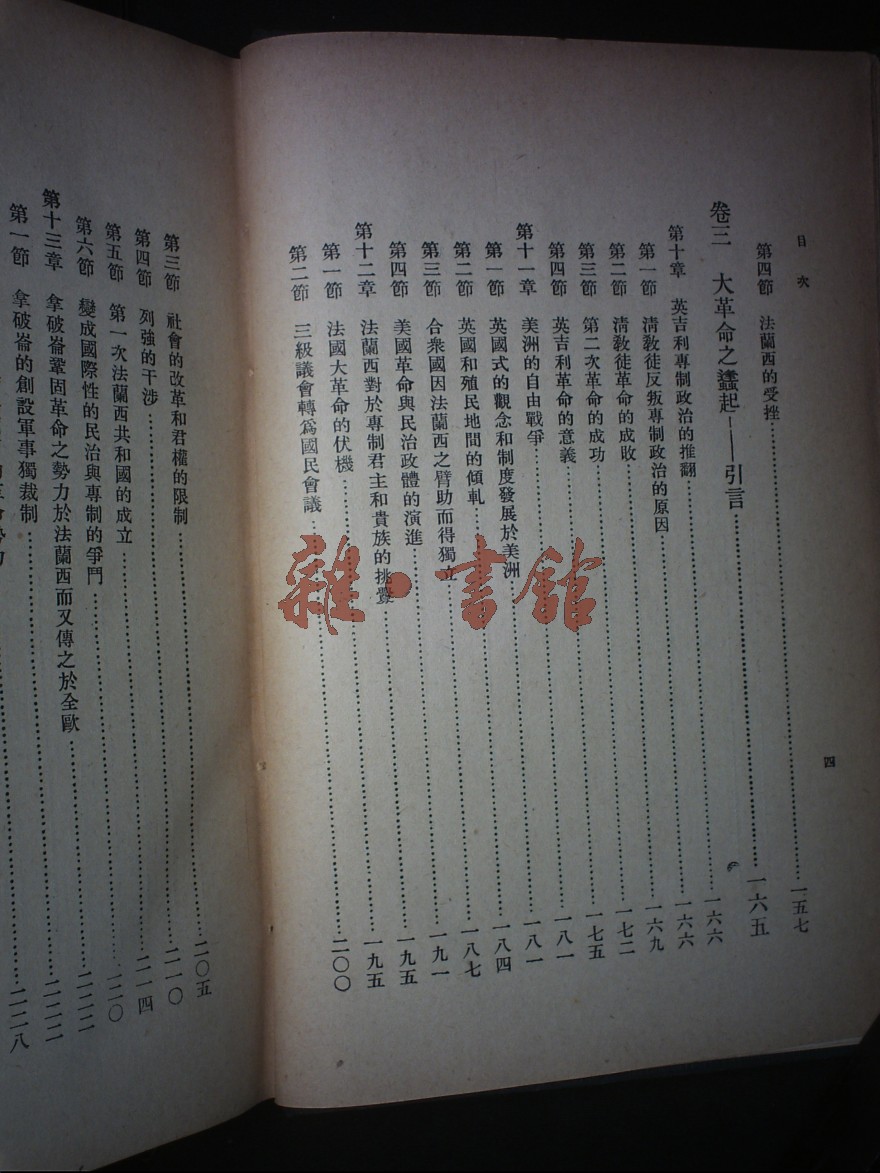 目次
四
第四節 法蘭西的受挫……一五七
卷三 大革命之蠭起——引言……一六五
第十章 英吉利專制政治的推翻……一六六
第一節 清教徒反叛專制政治的原因……一六六
第二節 清教徒革命的成敗……一六九
第三節 第二次革命的成功……一七二
第四節 英吉利革命的意義……一七五
第十一章 美洲的自由戰爭……一八一
第一節 英國式的觀念和制度發展於美洲……一八一
第二節 英國和殖民地間的傾軋……一八四
第三節 合衆國因法蘭西之臂助而得獨立……一八七
第四節 美國革命與民治政體的演進……一九一
第十二章 法蘭西對於專制君主和貴族的挑釁……一九五
第一節 法國大革命的伏機……一九五
第二節 三級議會轉爲國民會議……二〇〇
第三節 社會的改革和君權的限制……二〇五
第四節 列強的干涉……二一〇
第五節 第一次法蘭西共和國的成立……二一四
第六節 變成國際性的民治與專制的爭鬥……二二〇
第十三章 拿破崙鞏固革命之勢力於法蘭西而又傳之於全歐……二二二
第一節 拿破崙的創設軍事獨裁制……二二二
……二二八
雜·書館